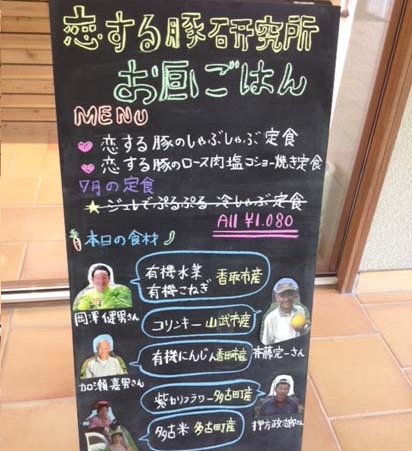 恋する豚研究所
お昼ごはん
MENU
恋する豚のしゃぶしゃぶ定食
恋する豚のロース肉塩コショー焼き定食
7月の定食
ジュレでぷるぷる 冷しゃぶ定食
All ¥1.080
本日の食材
有機水菜
有機こねぎ 香取市産
岡澤健男さん
コリンキー 山武市産
斉藤完一さん
有機にんじん 香取市産
加瀬嘉男さん
紫カリフラワー 多古町産
多古米 多古町産